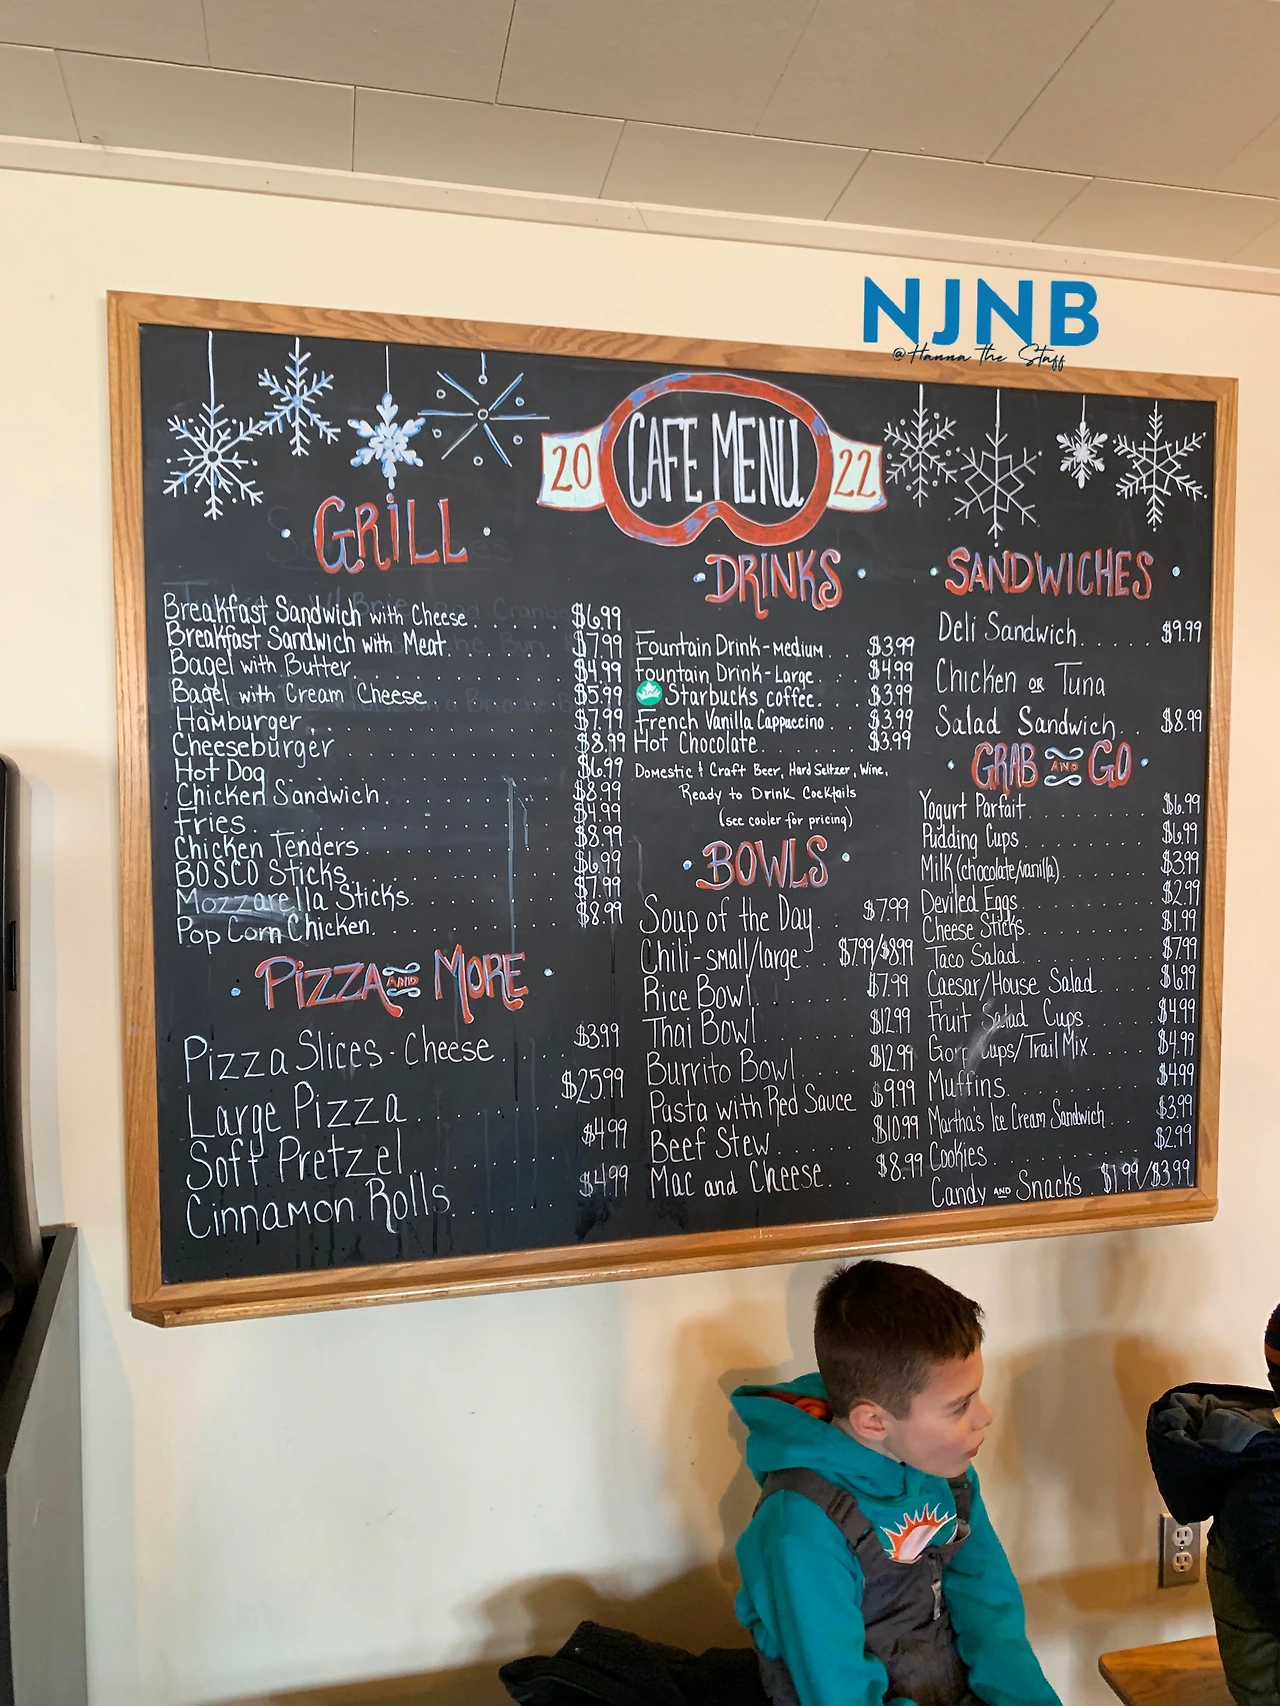 NJNB
@Hanna the Staff
20 CAFE MENU 22
GRILL
Breakfast Sandwich with Cheese $6.99
Breakfast Sandwich with Meat $7.99
Bagel with Butter $4.99
Bagel with Cream Cheese $5.99
Hamburger $7.99
Cheeseburger $8.99
Hot Dog $6.99
Chicken Sandwich $8.99
Fries $4.99
Chicken Tenders $8.99
BOSCO Sticks $6.99
Mozzarella Sticks $7.99
Pop Corn Chicken $8.99
PIZZA AND MORE
Pizza Slices - Cheese $3.99
Large Pizza $25.99
Soft Pretzel $4.99
Cinnamon Rolls $4.99
DRINKS
Fountain Drink - medium $3.99
Fountain Drink - Large $4.99
Starbucks coffee $3.99
French Vanilla Cappuccino $3.99
Hot Chocolate $3.99
Domestic & Craft Beer, Hard Seltzer, Wine,
Ready to Drink Cocktails
(see cooler for pricing)
BOWLS
Soup of the Day $7.99
Chili - small/large $7.99/$8.99
Rice Bowl $7.99
Thai Bowl $12.99
Burrito Bowl $12.99
Pasta with Red Sauce $9.99
Beef Stew $10.99
Mac and Cheese $8.99
SANDWICHES
Deli Sandwich $9.99
Chicken or Tuna
Salad Sandwich $8.99
GRAB AND GO
Yogurt Parfait $6.99
Pudding Cups $6.99
Milk (chocolate/vanilla) $3.99
Deviled Eggs $2.99
Cheese Sticks $1.99
Taco Salad $7.99
Caesar/House Salad $6.99
Fruit Salad Cups $4.99
Gorp Cups/Trail Mix $4.99
Muffins $4.99
Martha's Ice Cream Sandwich $3.99
Cookies $2.99
Candy AND Snacks $1.99/$3.99